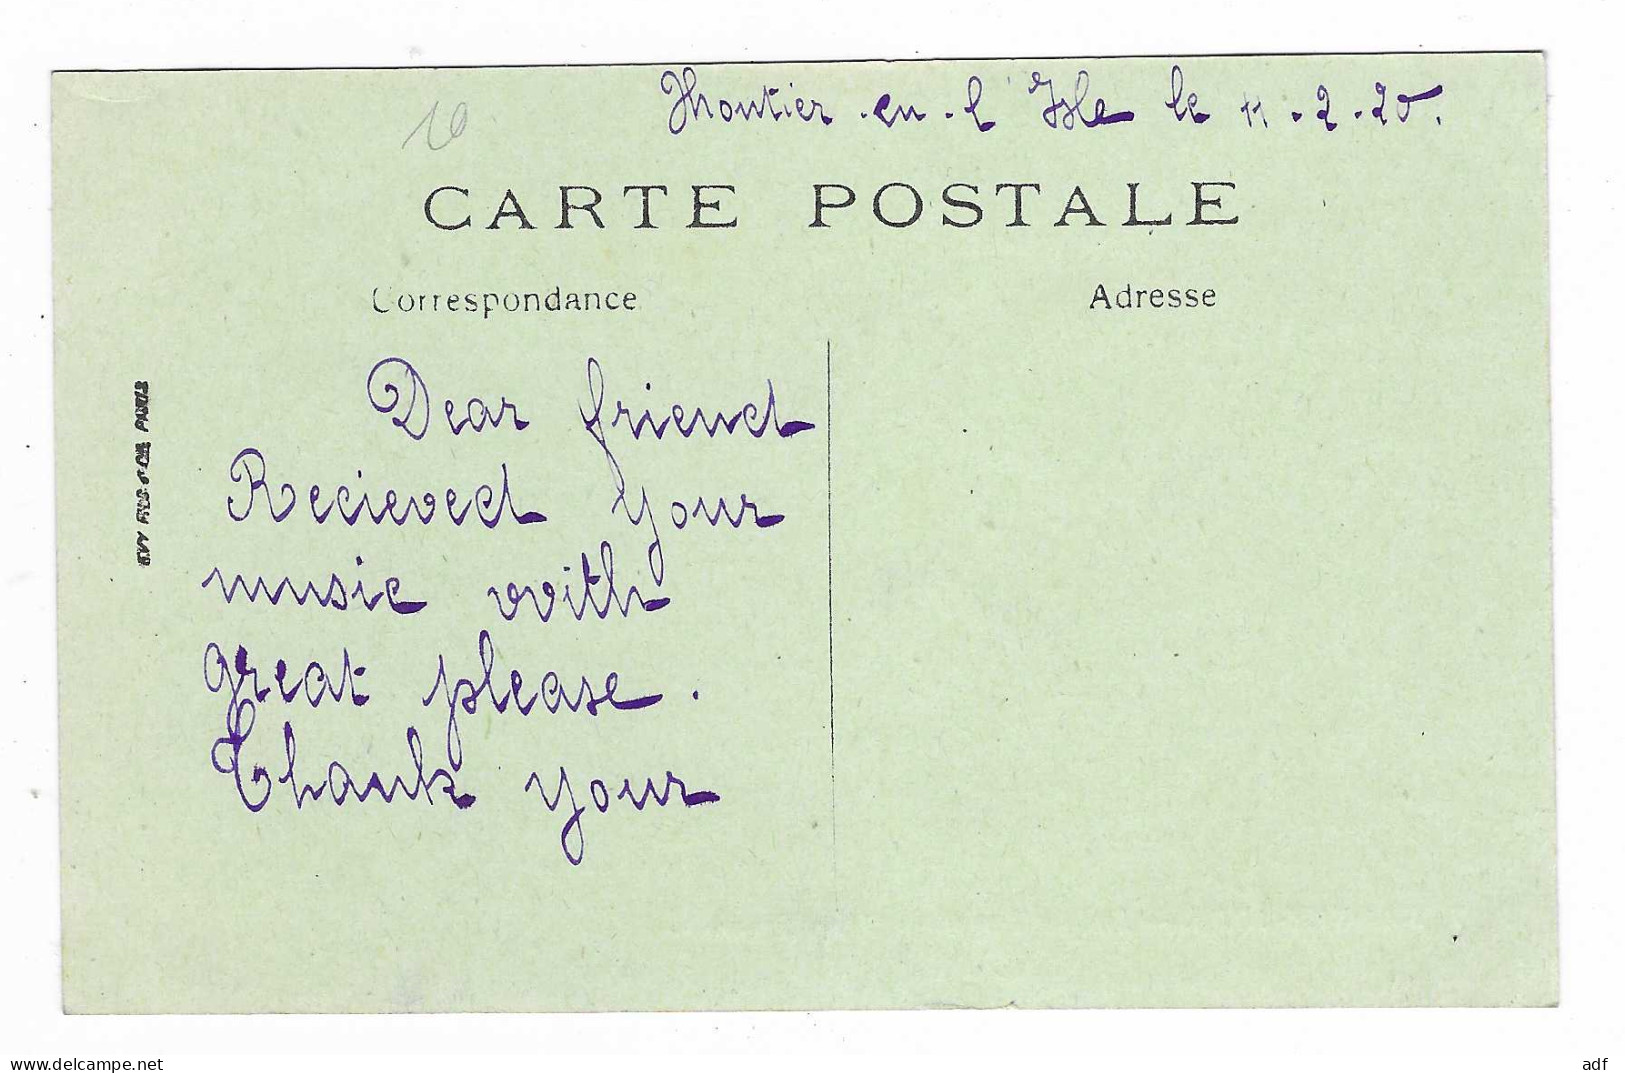 10
Montier-en-l'Isle le 11.2.20.
CARTE POSTALE
Correspondance
Adresse
EVY FILS & Cie PARIS
Dear friend
Recieved your
music with
great please.
Thank your
https://www.delcampe.net
adf